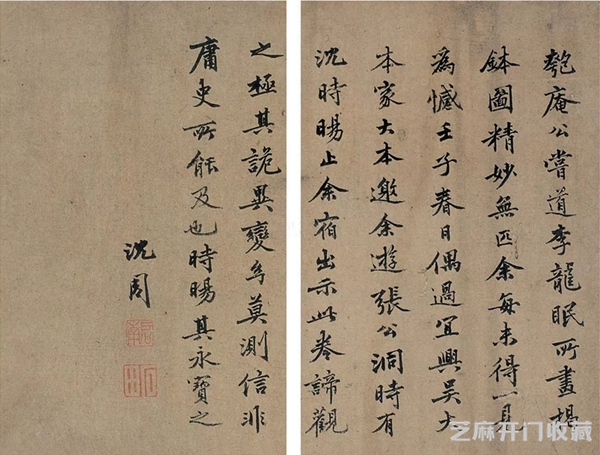 匏庵公嘗道李龍眠所畫揭
鉢圖精妙無匹余每未得一見
為憾壬子春日偶過宜興吳大
本家大本邀余遊張公洞時有
沈時暘止余宿出示此卷諦觀
之極其詭異變幻莫測信非
庸史所能及也時暘其永寶之
沈周
啟南
芝麻开门收藏